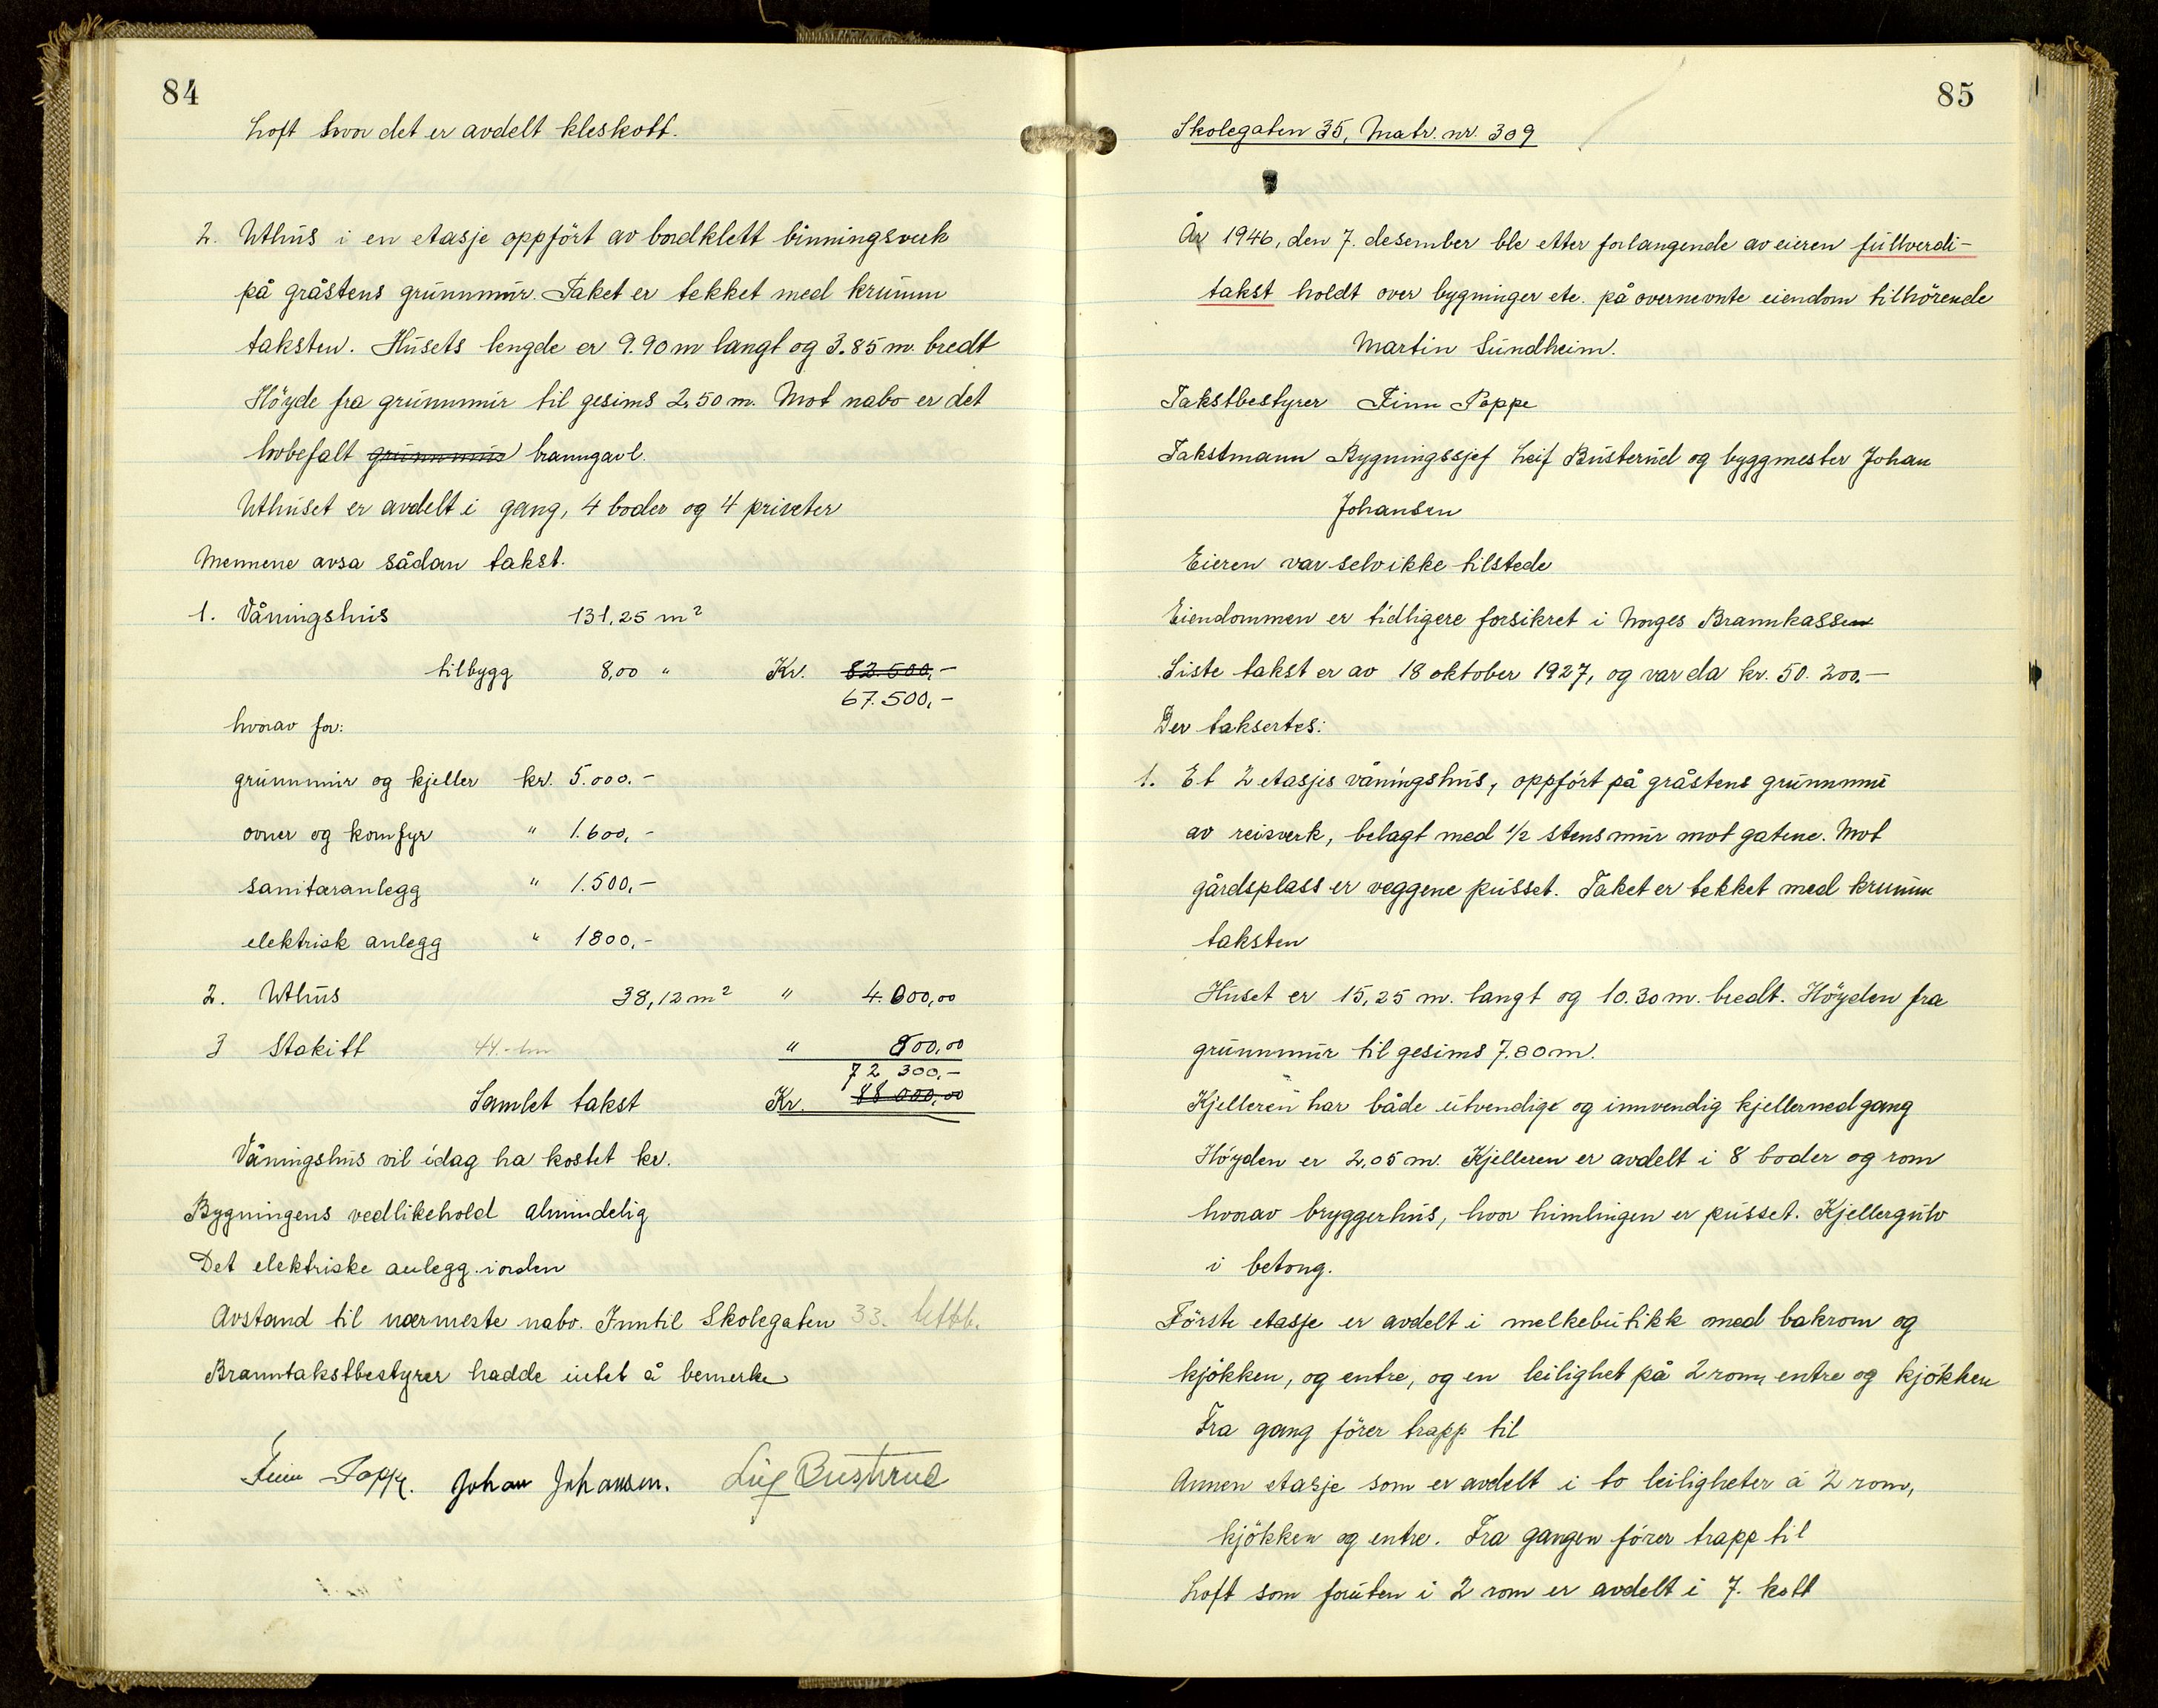 84
Loft hvor det er avdelt kleskott.
2. Uthus i en etasje oppført av bordklett binningsverk
på gråstens grunnmur. Taket er tekket med krumm
taksten. Husets lengde er 9.90 m langt og 3.85 m. bredt
Höyde fra grunnmur til gesims 2,50 m. Mot nabo er det
hobefalt grunnmur branngavl.
Uthuset er avdelt i gang, 4 boder og 4 priveter
Mennene avsa sådan takst.
1. Våningshus 131,25 m²
tilbygg 8,00 " Kr. 82.500,-
67.500,-
hvorav for:
grunnmur og kjeller kr. 5.000.-
ovner og komfyr " 1.600,-
sanitæranlegg " 1.500,-
elektrisk anlegg " 1800,-
2. Uthus 38,12 m² " 4.000,00
3 Stakitt 44.- lm " 800,00
72 300,-
Samlet takst Kr. 88 000,00
Våningshus vil idag ha kostet kr.
Bygningens vedlikehold almindelig
Det elektriske anlegg i orden
Avstand til nærmeste nabo. Inntil Skolegaten 33.
Branntakstbestyrer hadde intet å bemerke
Finn Poppe. Johan Johansen. Leif Busterud
85
Skolegaten 35, Matr. nr. 309
År 1946, den 7. desember ble etter forlangende av eieren fullverdi-
takst holdt over bygninger etc. på overnevnte eiendom tilhörende
Martin Sundheim.
Takstbestyrer Finn Poppe
Takstmann Bygningssjef Leif Busterud og byggmester Johan
Johansen
Eieren var selv ikke tilstede
Eiendommen er tidligere forsikret i Norges Brannkassen
Siste takst er av 18 oktober 1927, og var da kr. 50.200.-
Der taksertes:
1. Et 2 etasjes våningshus, oppfört på gråstens grunnmur
av reisverk, belagt med 1/2 stens mur mot gatene. Mot
gårdsplass er veggene pusset. Taket er tekket med krumm
taksten
Huset er 15,25 m. langt og 10.30 m. bredt. Höyden fra
grunnmur til gesims 7.80 m.
Kjelleren har både utvendige og innvendig kjellernedgang
Höyden er 2,05 m. Kjelleren er avdelt i 8 boder og rom
hvorav bryggerhus, hvor himlingen er pusset. Kjellergulv
i betong.
Förste etasje er avdelt i melkebutikk med bakrom og
kjökken, og entre, og en leilighet på 2 rom, entre og kjökken
Fra gang förer trapp til
Annen etasje som er avdelt i to leiligheter á 2 rom,
kjökken og entre. Fra gangen förer trapp til
Loft som foruten i 2 rom er avdelt i 7. kott